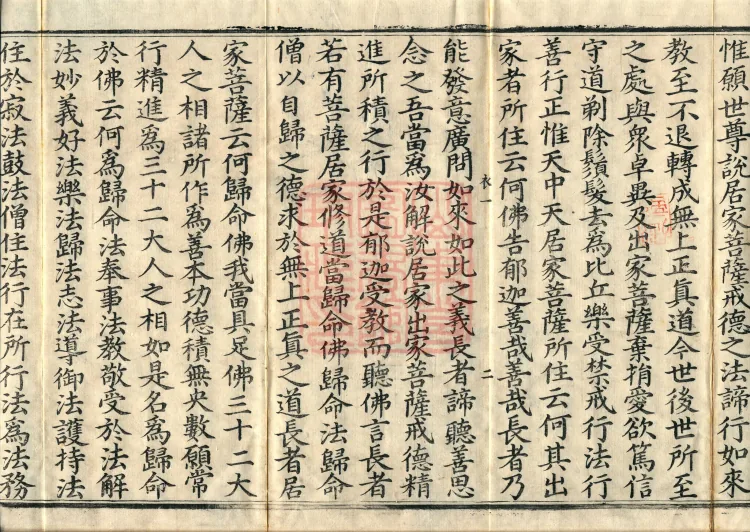 惟願世尊說居家菩薩戒德之法諦行如來
教至不退轉成無上正真道今世後世所至
之處與衆卓異及出家菩薩棄捐愛欲篤信
守道剃除鬚髮去爲比丘樂受禁戒行法行
善行正惟天中天居家菩薩所住云何其出
家者所住云何佛告郁迦善哉善哉長者乃
衣一 二
能發意廣問如來如此之義長者諦聽善思
念之吾當爲汝解說居家出家菩薩戒德精
進所積之行於是郁迦受教而聽佛言長者
若有菩薩居家修道當歸命佛歸命法歸命
僧以自歸之德求於無上正真之道長者居
家菩薩云何歸命佛我當具足佛三十二大
人之相諸所作爲善本功德積無央數願常
行精進爲三十二大人之相如是名爲歸命
於佛云何爲歸命法奉事法教敬受於法解
法妙義好法樂法歸法志法導御法護持法
住於寂法鼓法僧住法行在所行法爲法務